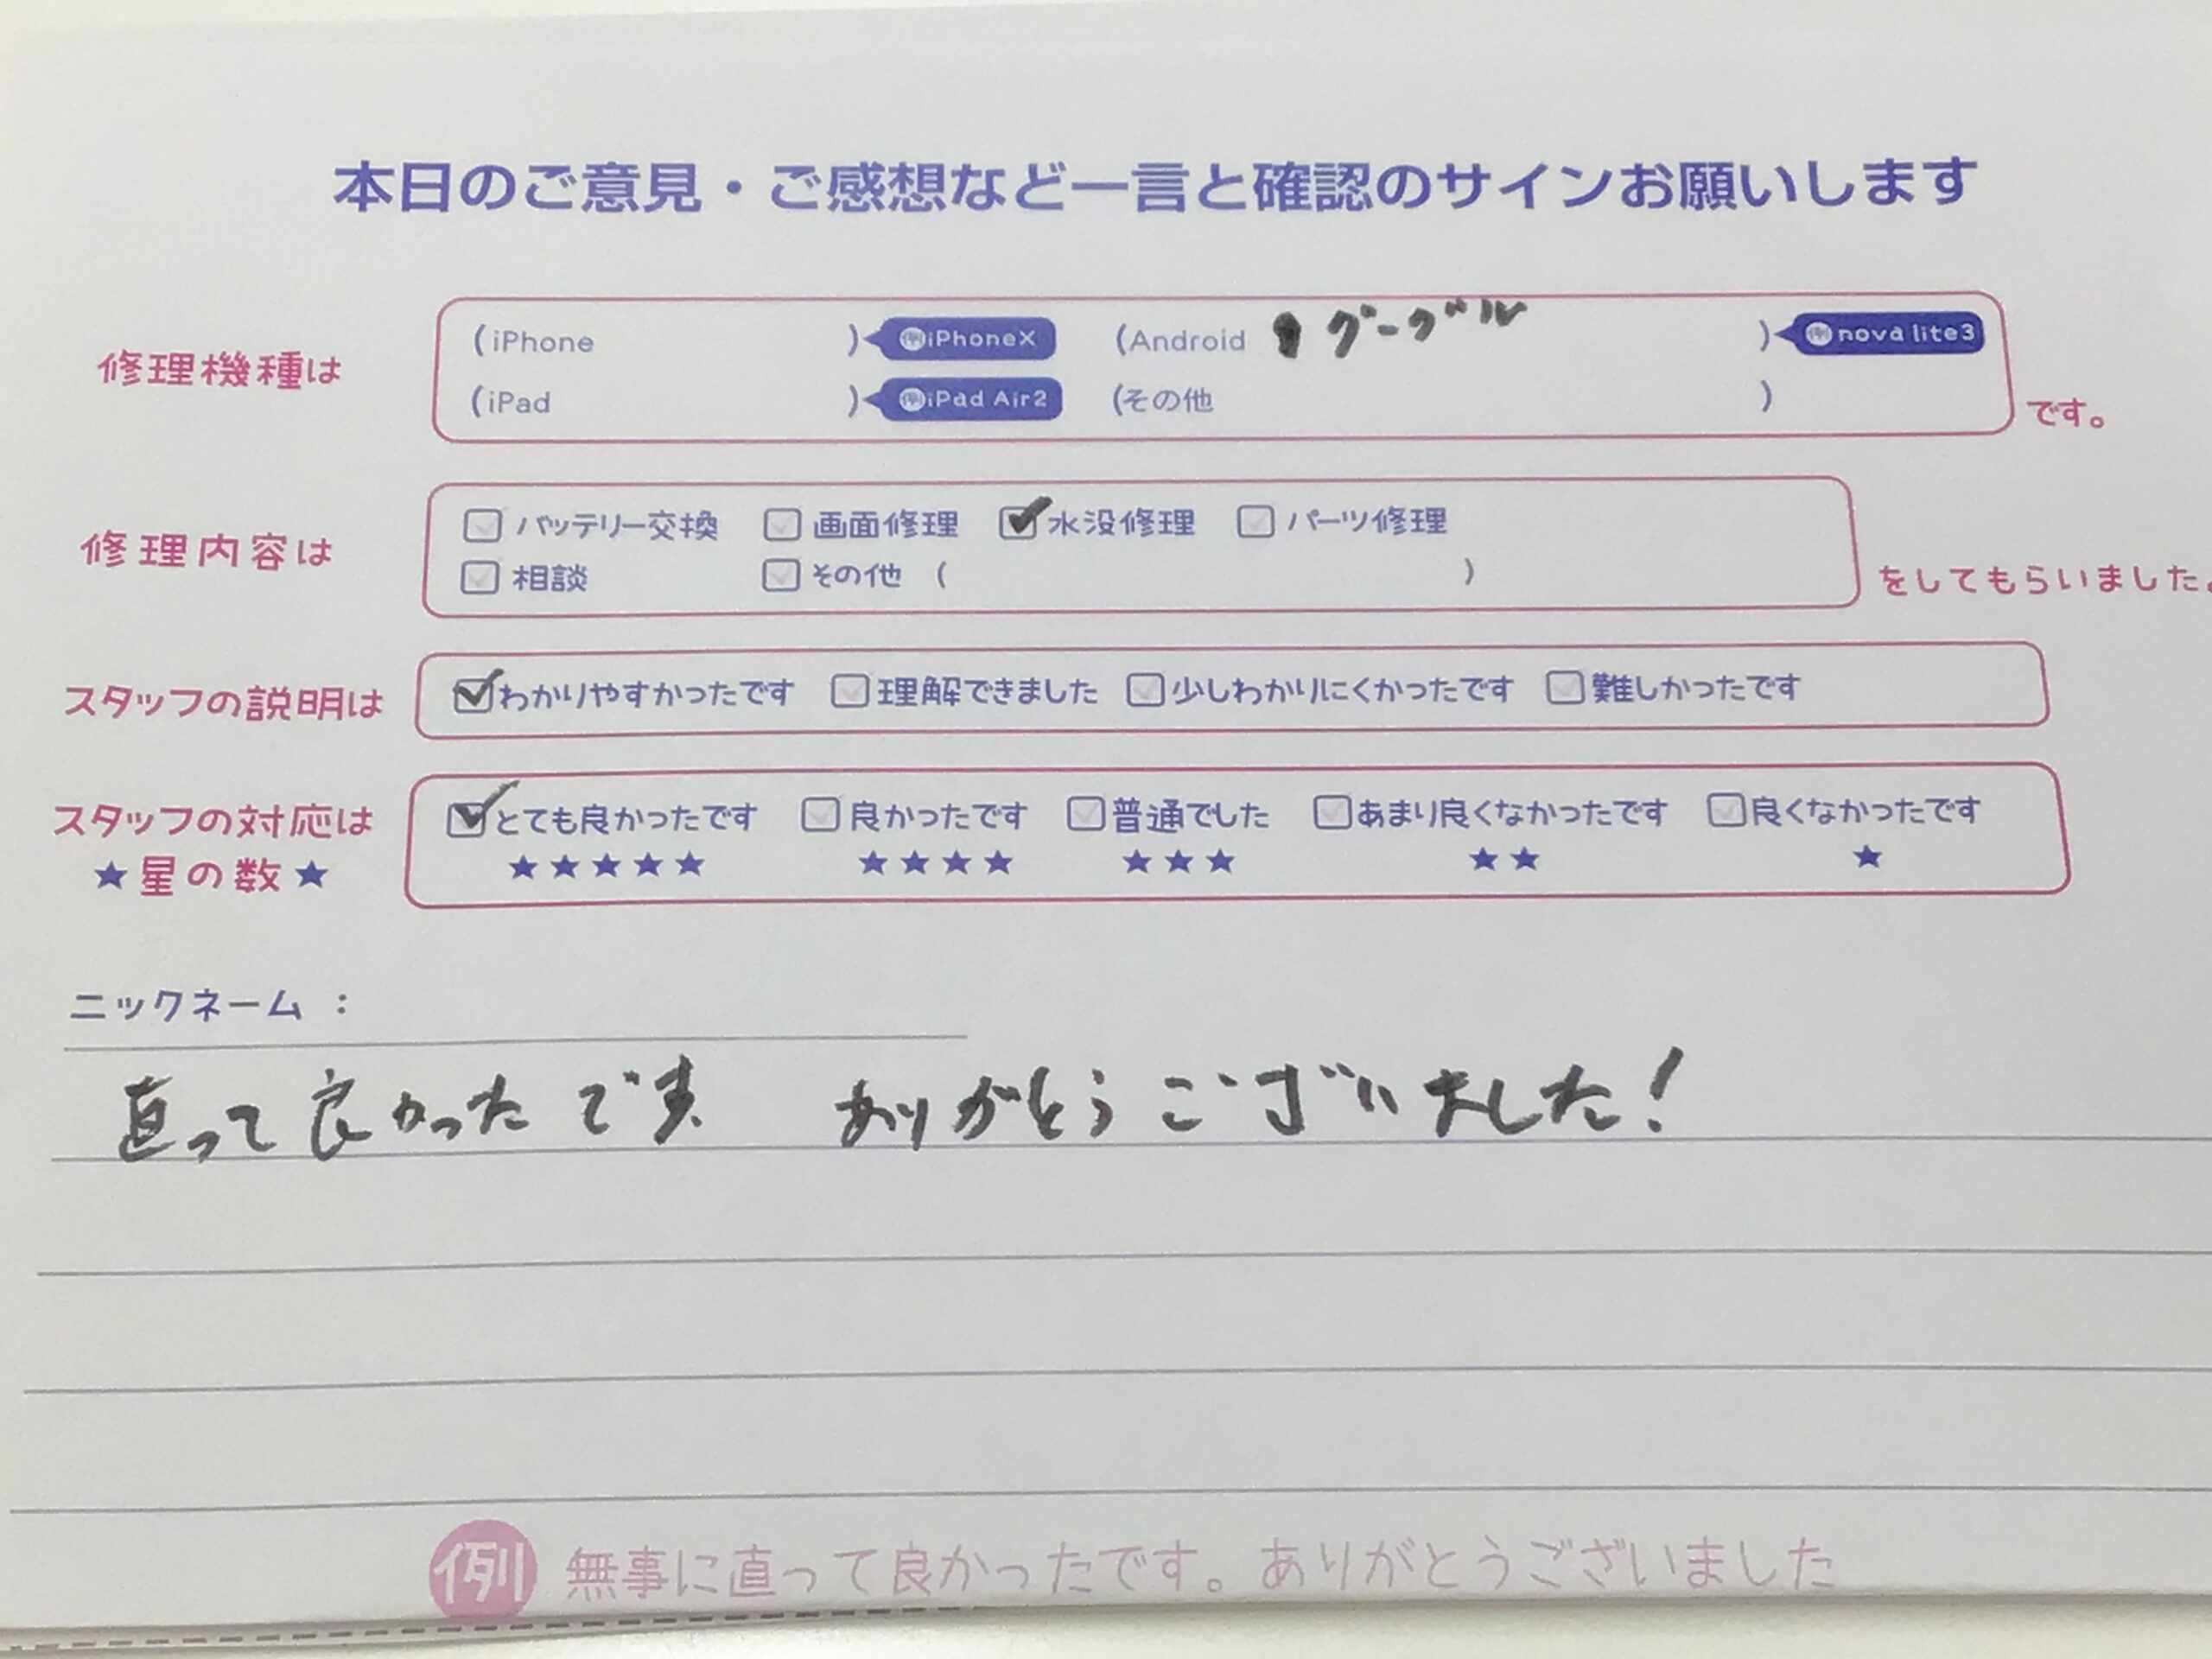 本日のご意見・ご感想など一言と確認のサインお願いします
修理機種は
(iPhone ) 例iPhoneX (Android グーグル ) 例nova lite3
(iPad ) 例iPad Air2 (その他 )
です。
修理内容は
バッテリー交換 画面修理 水没修理 パーツ修理
相談 その他 ( )
をしてもらいました。
スタッフの説明は
わかりやすかったです 理解できました 少しわかりにくかったです 難しかったです
スタッフの対応は
★星の数★
とても良かったです 良かったです 普通でした あまり良くなかったです 良くなかったです
★★★★★ ★★★★ ★★★ ★★ ★
ニックネーム :
直って良かったです ありがとうございました!
例 無事に直って良かったです。ありがとうございました